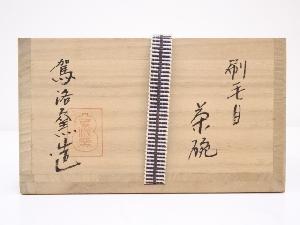 刷毛目
茶碗
駕洛窯造